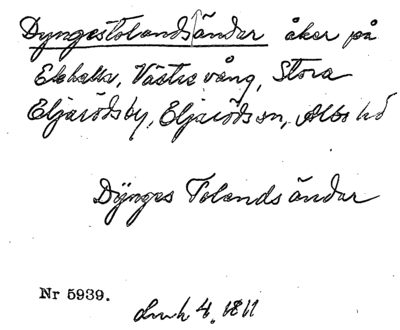 Dyngestolandsändar åker på
Ekhalls, Västre vång, Stora
Eljarödsby, Eljaröds sn, Albo hd
Dÿnges Tolands ändar
Nr 5939.
4. 1811